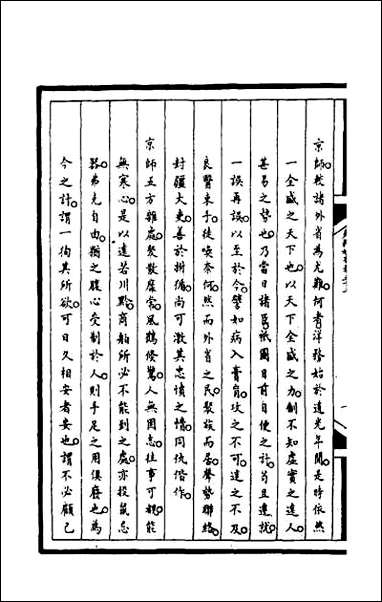 京師較諸外省為尤難何者洋務始於道光年間是時依然
一全盛之天下也以天下全盛之力制不知虛實之遠人
甚易之勢也乃當日諸臣祇圖目前自便之計苟且遷就
一誤再誤以至於今譬如病入膏肓攻之不可達之不及
良醫束手徒喚奈何然而外省之民聚族而居聲勢聯絡
封疆大吏善於拊循尚可激其忠憤之情同仇偕作
京師五方雜處聚散靡常風鶴倏驚人無固志往事可覩能
無寒心是以遠若川黔商舶所必不能到之處亦投鼠忌
器弗克自由猶之腹心受制於人則手足之用俱廢也為
今之計謂一徇其所欲可日久相安者妄也謂不必顧已